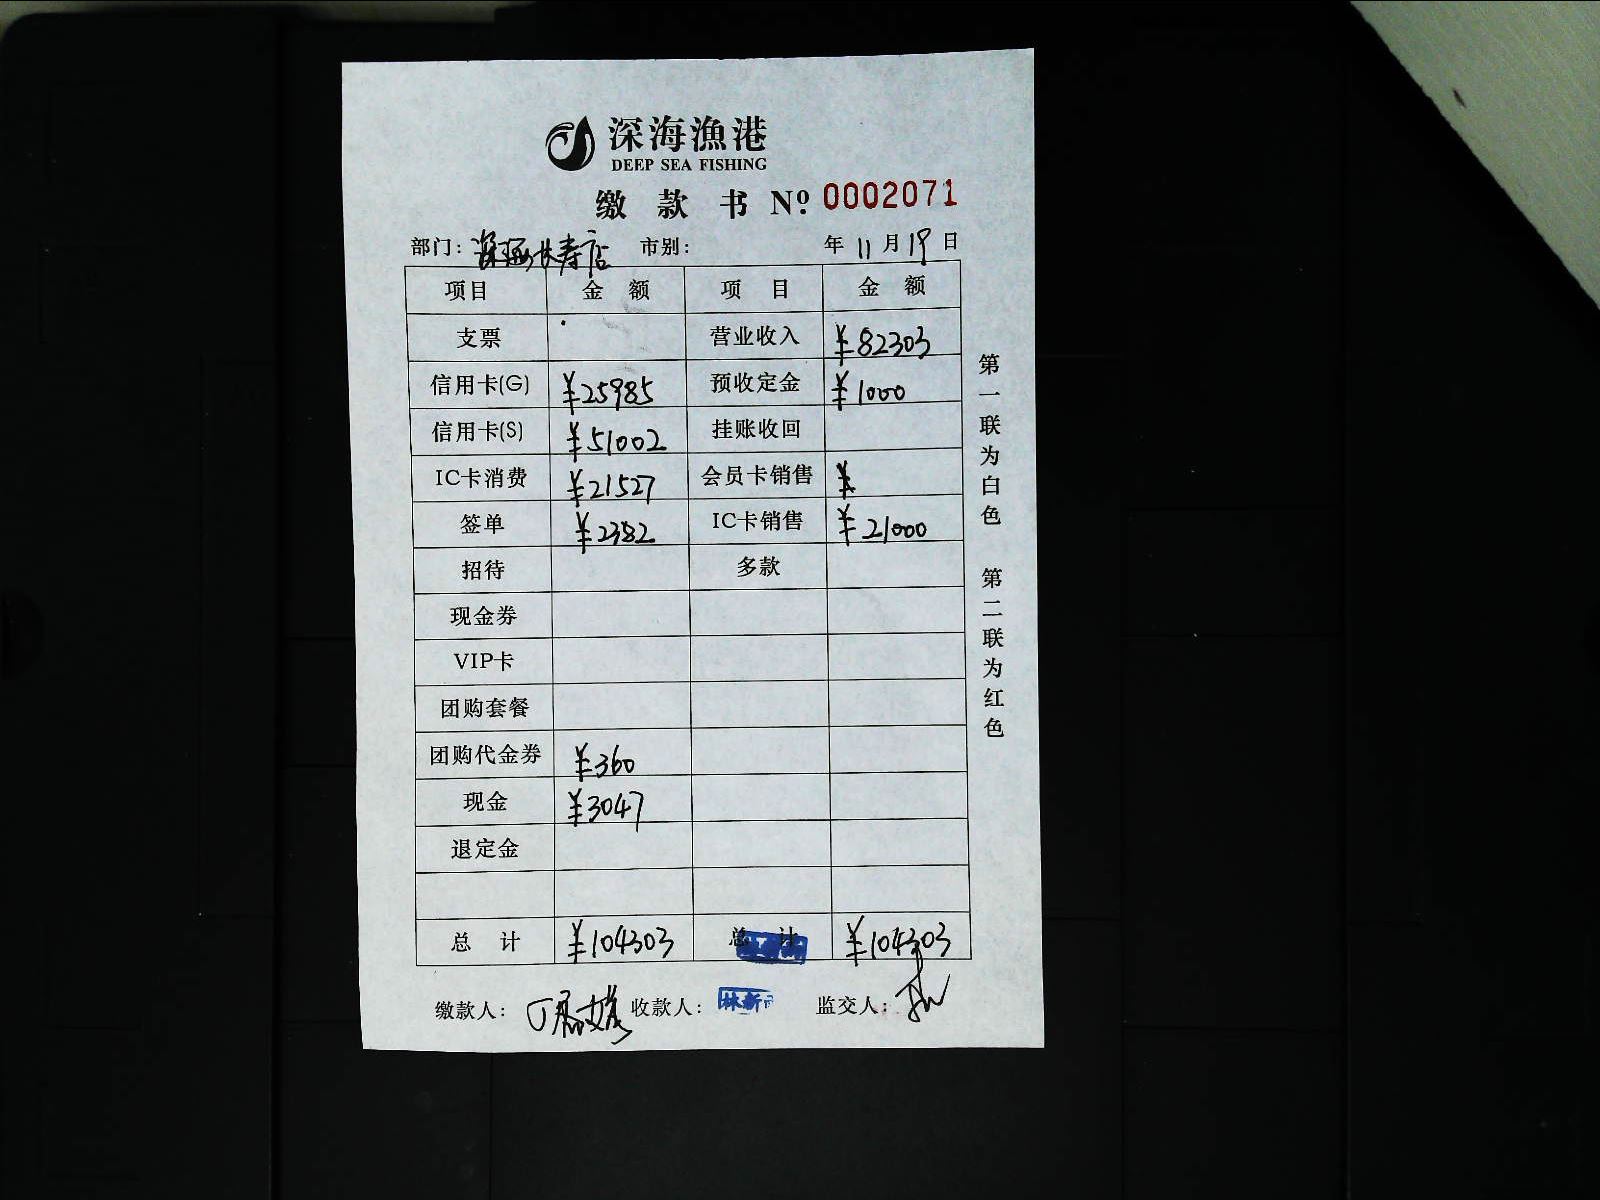 深海漁港
DEEP SEA FISHING
缴 款 书 Nº 0002071
部门：深海长寿店 市别： 年 11 月 19 日
项目 金 额 项 目 金 额
支票 营业收入 ¥82303
信用卡(G) ¥25985 预收定金 ¥1000
信用卡(S) ¥51002 挂账收回
IC卡消费 ¥21527 会员卡销售 ¥
签单 ¥2382 IC卡销售 ¥21000
招待 多款
现金券
VIP卡
团购套餐
团购代金券 ¥360
现金 ¥3047
退定金
总 计 ¥104303 总 计 ¥104303
缴款人： 收款人：林新 监交人：
第一联为白色 第二联为红色